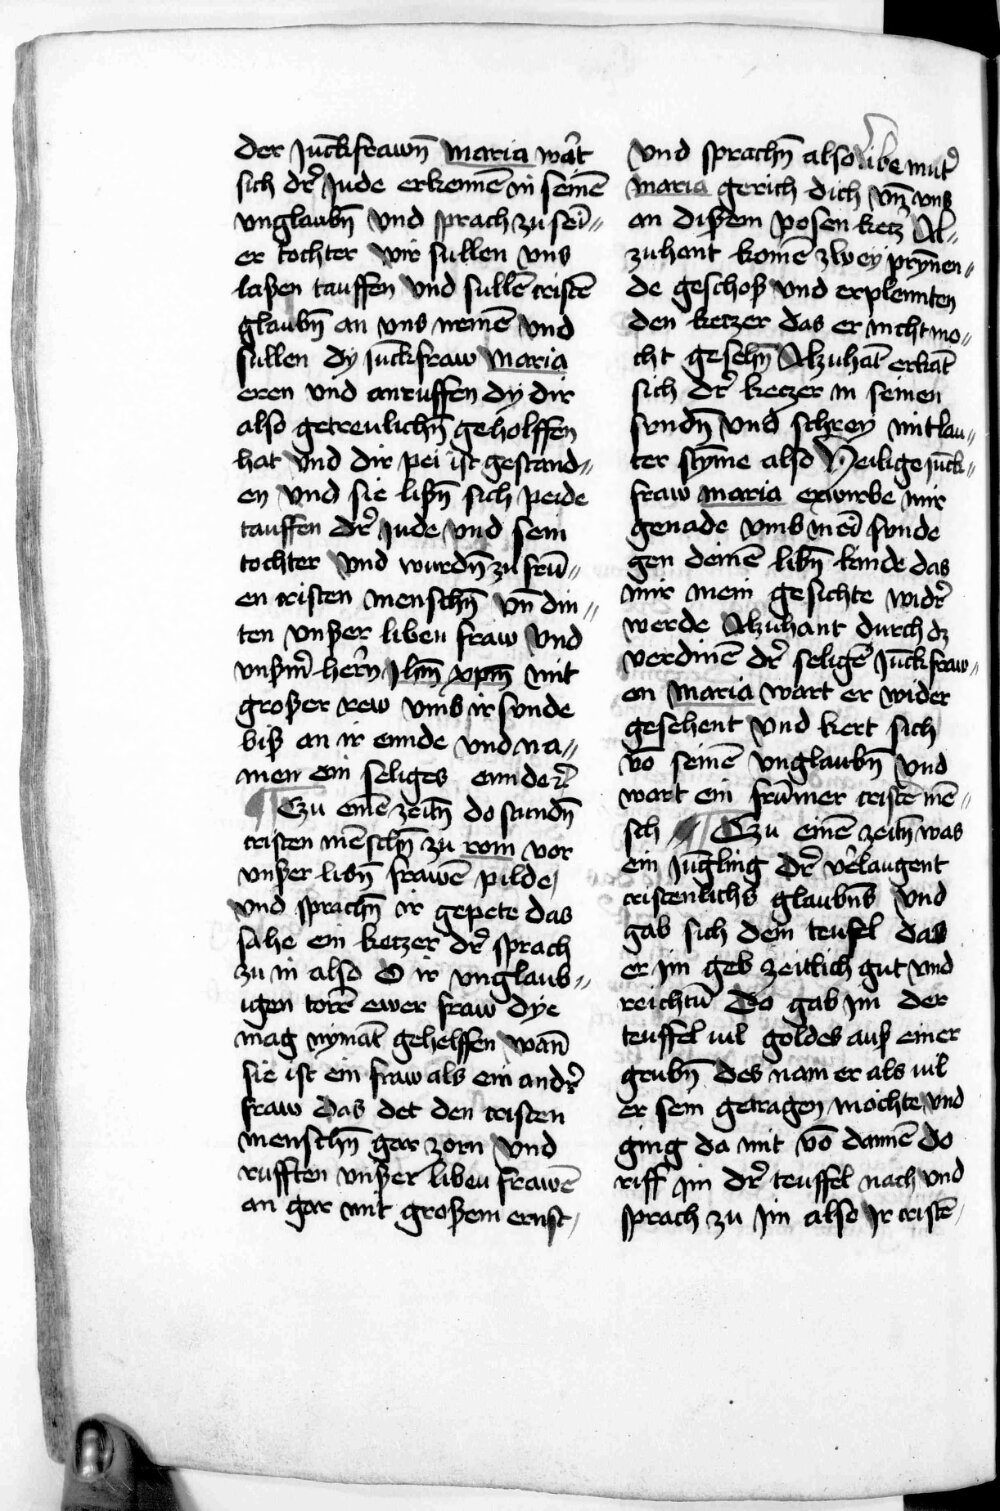 der Juckfrawn̄ maria wart
sich dr̄ Jude erkennē in seinē
vnglaubn̄ Vnd sprach zu sei=
er tochter wir sullen vns
laßen tauffen Vnd sullē cristē
glaubn̄ an vns nemē Vnd
sullen dÿ Jūckfraw Maria
eren Vnd anruffen dÿ dir
also getreulichn̄ geholffen
hat Vnd dir pei ist gestand=
en Vnd sie lißn̄ sich peide
tauffen dr̄ Jude Vnd sein
tochter Vnd wurdn̄ zu frū=
en cristen menschn̄ Vn̄ din=
ten Vnßer liben fraw Vnd
Vnßm̄ hern̄ Jhm̄ xpm̄ mit
großer rew Vmb ir sunde
biß an ir ennde Vnd na=
men ein seliges ennde ꝛc̄
¶ Czu einē zeitn̄ do stundn̄
cristen mēschn̄ zu rom vor
Vnßer libn̄ frawē pilde
Vnd sprachn̄ ir gepete das
sahe ein ketzer dr̄ sprach
zu in also O ir vnglaub=
igen torē ewer fraw dÿe
mag nymāt gehelffen wan̄
sie ist ein fraw als ein andr̄
fraw Das det den cristen
menschn̄ gar zorn Vnd
rufften Vnßer liben frawē
an gar mit großem ernst
Vnd sprachn̄ also libe mut̄
maria gerich dich Vn̄ vns
an dißem posen ketz̄ Al=
zuhant komē zwey prÿnen=
de geschoß Vnd erplennten
den ketzer das er nicht mo=
cht gesehn̄ Alzuhāt erkāt
sich dr̄ ketzer in seinen
sundn̄ Vnd schrey mit lau=
ter stȳme also Heilige Jūck=
fraw maria erwirbe mir
genade Vmb mei sunde
gen deinē libn̄ kinde das
mir mein gesichte widr̄
werde Alzuhant durch dz
verdinē dr̄ seligē Jūckfraw=
en maria wart er wider
gesehent Vnd kert sich
vō seinē Vnglaubn̄ Vnd
wart ein frūmer cristē mē=
sch ¶ Czu einē zeitn̄ was
ein Jūgling dr̄ v̄laugent
cristenlichs glaubn̄s Vnd
gab sich dem teufel das
er Im geb zeitlich gut Vnd
reichtū Do gab Im der
teuffel vil goldes auß einer
grubn̄ des nam er als vil
er sein getragen mochte Vnd
ging da mit vō dannē do
riff Im dr̄ teuffel nach Vnd
sprach zu Im also Ir cristē